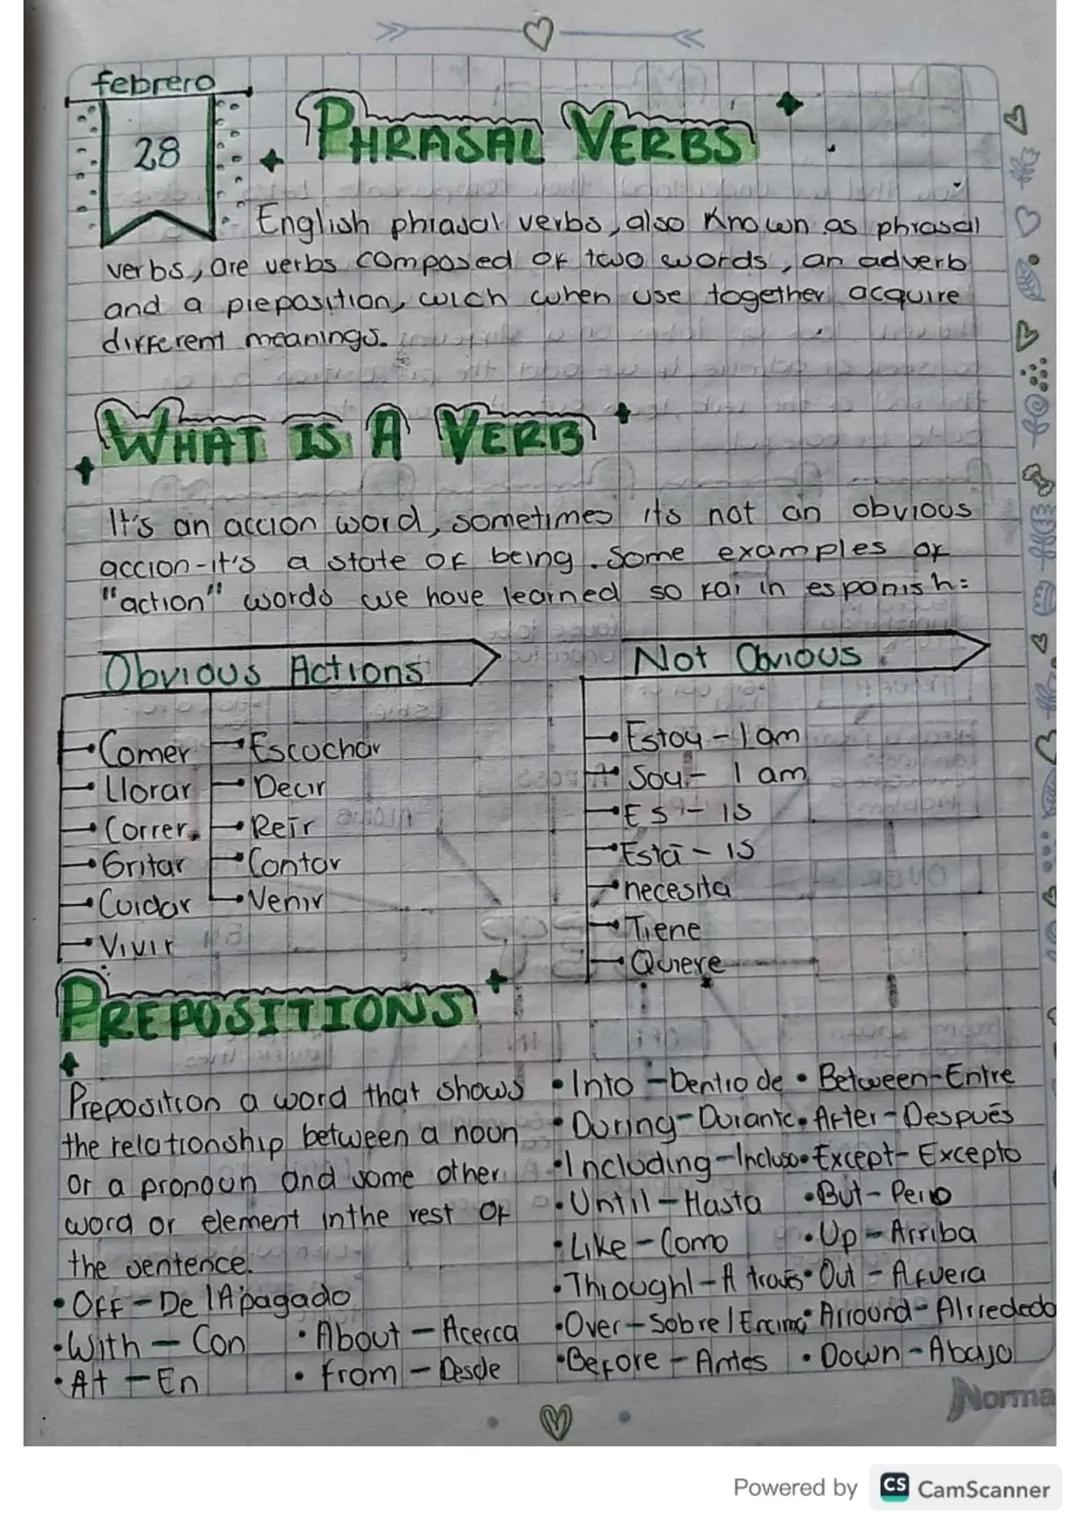 febrero
28
PHRASAL VERBS
English phrasal verbs, also Known as phrasal
verbs, are verbs composed of two words, an adverb
and a preposition, wich when use together acquire
different meanings.
WHAT IS A VERB
It's an accion word, sometimes its not an obvious
accion-it's a state of being. Some examples of
"action" words we have learned so far in espanish:
Obvious Actions
Comer
Llorar
Correr
Gritar
Cuidar
Vivir
Escuchar
Decir
Reír
Contar
Venir
Not Obvious
Estoy - I am
Soy - I am
Es - is
Está - is
necesita
Tiene
Quiere
PREPOSITIONS
Preposition a word that shows
the relationship between a noun
or a pronoun and some other
word or element in the rest of
the sentence.
• Off - De / Apagado
• With - Con
• At - En
• About - Acerca
• From - Desde
• Into - Dentro de
• During - Durante
• Including - Incluso
• Until - Hasta
• Like - Como
• Throught - A través
• Over - Sobre / Encima
• Before - Antes
• Between - Entre
• After - Después
• Except - Excepto
• But - Pero
• Up - Arriba
• Out - Afuera
• Arround - Alrrededo
• Down - Abajo
Norma
Powered by CS CamScanner